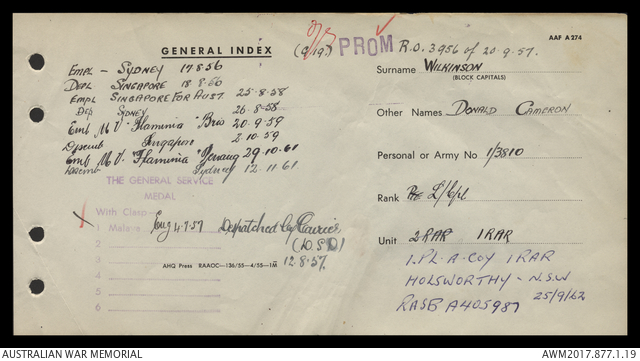 AAF A274
GENERAL INDEX
PROM R.O. 3956 of 20.9.57.
EMPL - SYDNEY 17 8 56
DEPL SINGAPORE 18.8.56
EMPL SINGAPORE FOR AUST. 25.8.58
DEP SYDNEY 26.8.58
Emb M.V. "Flaminia" Bris 20.9.59
Disemb Singapore 2.10.59
Emb M.V. "Flaminia" 29.10.61
Disemb Sydney 12.11.61
THE GENERAL SERVICE
MEDAL
With Clasp
1 Malaya Eng 4.7.57 Despatched by Courier
2 (D.S.D)
3 12.8.57.
4
5
6
AHQ Press RAAOC-136/55-4/55-1M
Surname WILKINSON
(BLOCK CAPITALS)
Other Names DONALD CAMERON
Personal or Army No 1/3810
Rank Pte L/Cpl
Unit 2RAR 1RAR
1.PL. A. COY 1RAR
HOLSWORTHY - N.S.W
RASB A405987 25/9/62
AUSTRALIAN WAR MEMORIAL
AWM2017.877.1.19